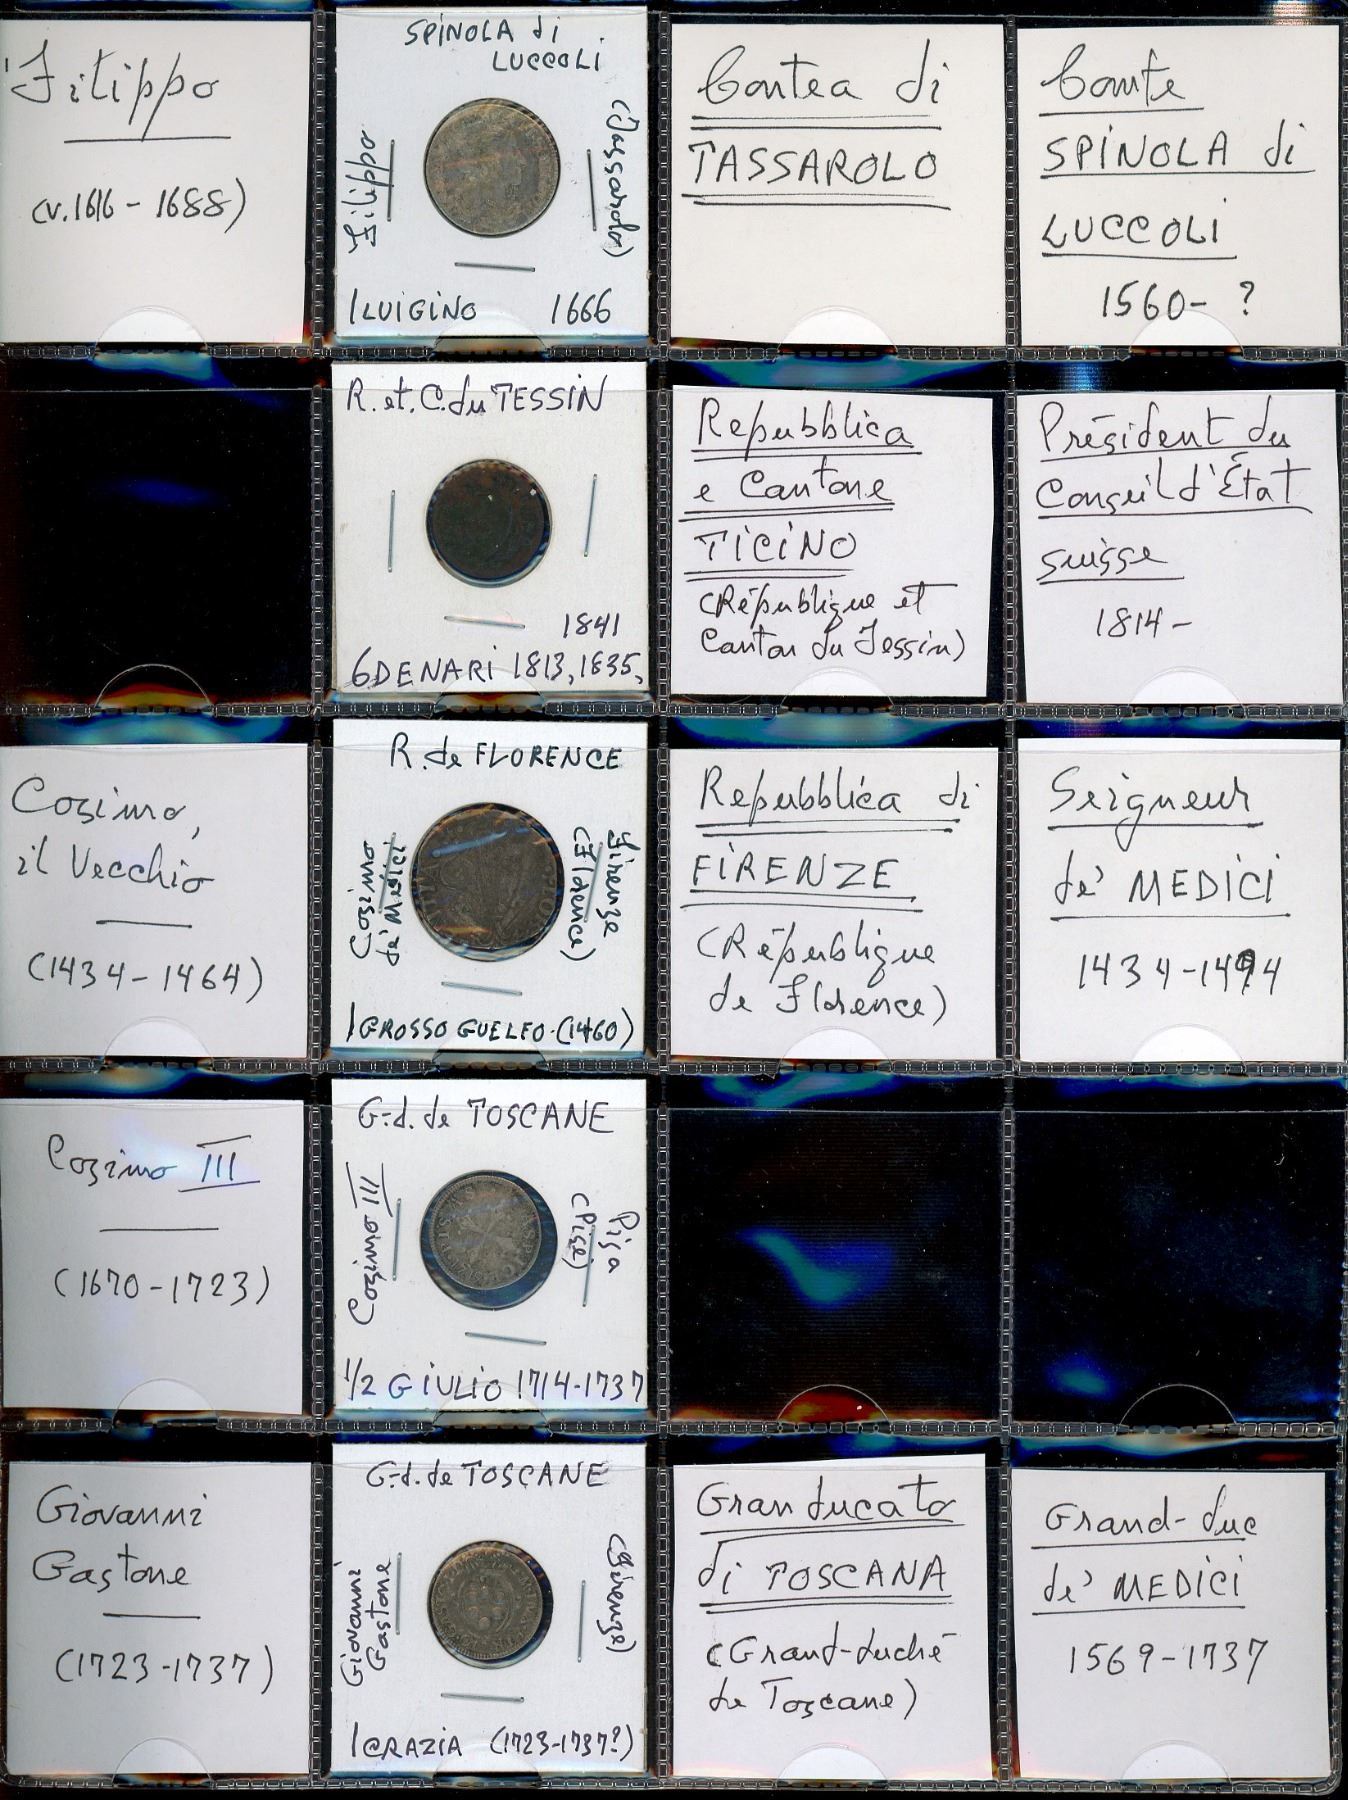 Filippo
(v.1616 - 1688)
SPINOLA di
LUCCOLI
Filippo
(Tassarolo)
1 LUIGINO 1666
Contea di
TASSAROLO
Comte
SPINOLA di
LUCCOLI
1560- ?
R. et. C. du TESSIN
1841
6 DENARI 1813, 1835,
Repubblica
e Cantone
TICINO
(République et
Canton du Tessin)
Président du
Conseil d'État
suisse
1814 -
Cosimo,
il Vecchio
(1434 - 1464)
R. de FLORENCE
Cosimo
de' Medici
Firenze
(Florence)
1 GROSSO GUELFO (1460)
Repubblica di
FIRENZE
(République
de Florence)
Seigneur
de' MEDICI
1434-1494
Cosimo III
(1670 - 1723)
G.-d. de TOSCANE
Cosimo III
Pisa
(Pise)
1/2 GIULIO 1714-1737
Giovanni
Gastone
(1723-1737)
G.-d. de TOSCANE
Giovanni
Gastone
(Firenze)
1 CRAZIA (1723-1737?)
Granducato
di TOSCANA
(Grand-duché
de Toscane)
Grand-duc
de' MEDICI
1569-1737